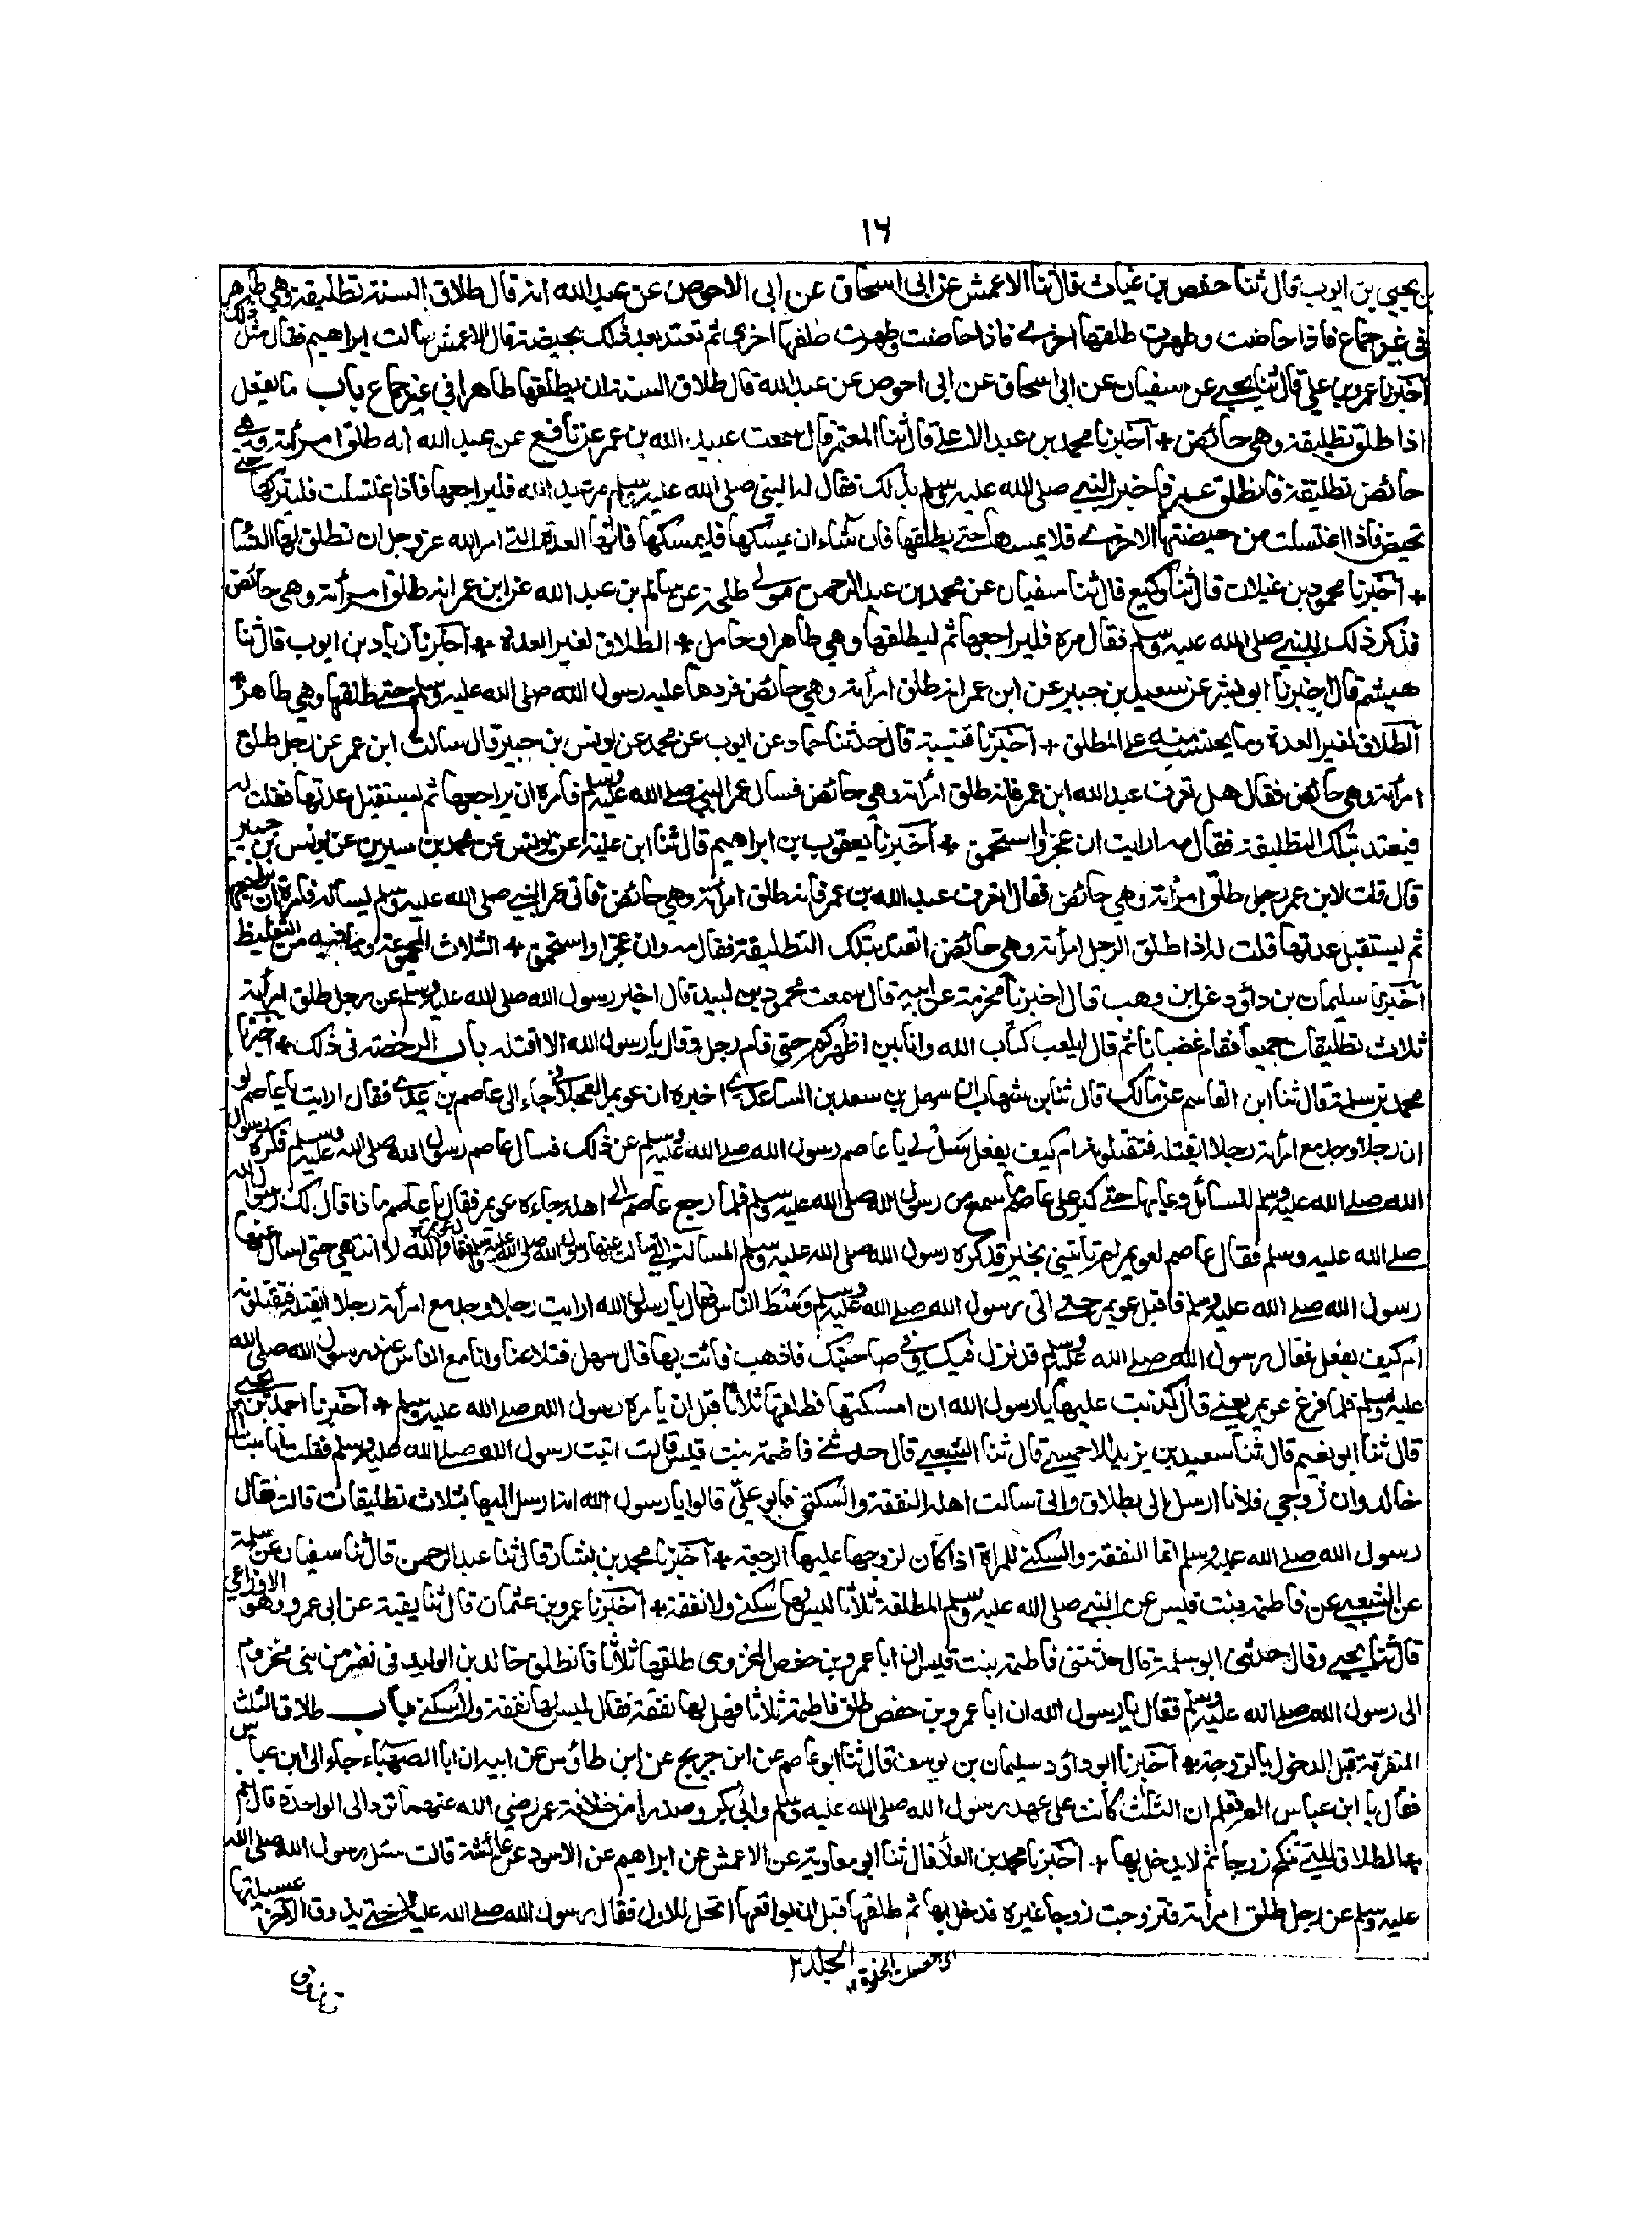 ١٦
بن يحيى بن ايوب قال ثنا حفص بن غياث قال ثنا الاعمش عن ابى اسحاق عن ابى الاحوص عن عبد الله انه قال طلاق السنة تطليقة وهي طاهر
فى غير جماع فاذا حاضت وطهرت طلقها اخرے فاذا حاضت وطهرت طلقها اخرى ثم تعتد بعد ذلك بحيضة قال الاعمش سالت ابراهيم فقال مثل ذلك
اخبرنا عمرو بن علي قال ثنا يحيے عن سفيان عن ابى اسحاق عن ابى احوص عن عبد الله قال طلاق السنة ان يطلقها طاهرا في غير جماع باب ما يفعل
اذا طلق تطليقة وهى حائض + اخبرنا محمد بن عبد الاعلے قال ثنا المعتمر قال سمعت عبيد الله بن عمر عن نافع عن عبد الله انه طلق امرأته وهے
حائض تطليقة فانطلق عمر فاخبر النبے صلى الله عليه وسلم بذلك فقال له النبي صلى الله عليه وسلم مر عبد الله فليراجعها فاذا اغتسلت فليتركها حتے
تحيض فاذا اغتسلت من حيضتها الاخرے فلا يمسها حتے يطلقها فان شاء ان يمسكها فليمسكها فانها العدة التے امر الله عز وجل ان تطلق لها النسا
+ اخبرنا محمود بن غيلان قال ثنا وكيع قال ثنا سفيان عن محمد بن عبد الرحمن مولے طلحة عن سالم بن عبد الله عن ابن عمر انه طلق امرأته وهى حائض
فذكر ذلك للنبے صلى الله عليه وسلم فقال مره فليراجعها ثم ليطلقها وهي طاهر او حامل + الطلاق لغير العدة + اخبرنا زياد بن ايوب قال ثنا
هيشم قال اخبرنا ابو بشر عن سعيد بن جبير عن ابن عمر انه طلق امرأته وهي حائض فردها عليه رسول الله صلى الله عليه وسلم حتے طلقها وهي طاهر +
الطلاق لغير العدة وما يحتسب منه علے المطلق + اخبرنا قتيبة قال حدثنا حماد عن ايوب عن محمد عن يونس بن جبير قال سالت ابن عمر عن رجل طلق
امرأته وهى حائض فقال هل تعرف عبد الله ابن عمر فانه طلق امرأته وهي حائض فسال عمر النبي صلے الله عليه وسلم فامره ان يراجعها ثم يستقبل عدتها فقلت له
فيعتد بتلك التطليقة فقال مه ارايت ان عجز واستحمق + اخبرنا يعقوب بن ابراهيم قال ثنا ابن علية عن يونس عن محمد بن سيرين عن يونس بن جبير
قال قلت لابن عمر رجل طلق امرأته وهى حائض فقال اتعرف عبد الله بن عمر فانه طلق امرأته وهي حائض فاتى عمر النبے صلى الله عليه وسلم يساله فامره ان يراجعها
ثم ليستقبل عدتها قلت له اذا طلق الرجل امرأته وهى حائض اتعتد بتلك التطليقة فقال مه وان عجز او استحمق + الثلاث المجموعة وما فيه من التغليظ
اخبرنا سليمان بن داؤد عن ابن وهب قال اخبرنا مخرمة عن ابيه قال سمعت محمود بن لبيد قال اخبر رسول الله صلى الله عليه وسلم عن رجل طلق امرأته
ثلاث تطليقات جميعا فقام غضبانا ثم قال ايلعب كتاب الله وانا بين اظهركم حتى قام رجل وقال يا رسول الله الا اقتله باب الرخصة فى ذلك + اخبرنا
محمد بن سلمة قال ثنا ابن القاسم عن مالك قال ثنا ابن شهاب ان سهل بن سعد بن الساعدے اخبره ان عويمر العجلانے جاء الى عاصم بن عدے فقال ارايت يا عاصم لو
ان رجلا وجد مع امرأته رجلا ايقتله فتقتلونه ام كيف يفعل سل لے يا عاصم رسول الله صلے الله عليه وسلم عن ذلك فسال عاصم رسول الله صلى الله عليه وسلم فكره رسول
الله صلے الله عليه وسلم المسائل وعابها حتے كبر على عاصم ما سمع من رسول الله صلى الله عليه وسلم فلما رجع عاصم الے اهله جاءه عويمر فقال يا عاصم ما ذا قال لك رسول الله
صلے الله عليه وسلم فقال عاصم لعويمر لم تاتينى بخير قد كره رسول الله صلى الله عليه وسلم المسالة التے سالت عنها فقال والله لا انتهي حتى اسال عنها
رسول الله صلے الله عليه وسلم فاقبل عويمر حتے اتى رسول الله صلے الله عليه وسلم وسط الناس فقال يا رسول الله ارايت رجلا وجد مع امرأته رجلا ايقتله فتقتلونه
ام كيف يفعل فقال رسول الله صلے الله عليه وسلم قد نزل فيك وفي صاحبتك فاذهب فائت بها قال سهل فتلاعنا وانا مع الناس عند رسول الله صلى الله
عليه وسلم فلما فرغ عويمر يعنے قال كذبت عليها يا رسول الله ان امسكتها فطلقها ثلاثا قبل ان يامره رسول الله صلے الله عليه وسلم + اخبرنا احمد بن يحيے
قال ثنا ابو نعيم قال ثنا سعيد بن يزيد الاحمسے قال ثنا الشعبے قال حدثتنے فاطمة بنت قيس قالت اتيت رسول الله صلے الله عليه وسلم فقلت انا بنت ال
خالد وان زوجي فلانا ارسل الى بطلاق وانى سالت اهله النفقة والسكنى فابو علىّ قالوا يا رسول الله انه ارسل اليها بثلاث تطليقات قالت فقال
رسول الله صلے الله عليه وسلم انما النفقة والسكنے للمرأة اذا كان لزوجها عليها الرجعة + اخبرنا محمد بن بشار قال ثنا عبد الرحمن قال ثنا سفيان عن سلمة
عن الشعبے عن فاطمة بنت قيس عن النبے صلى الله عليه وسلم المطلقة ثلاثا ليس لها سكنے ولا نفقة + اخبرنا عمرو بن عثمان قال ثنا بقية عن ابى عمرو وهو الاوزاعي
قال ثنا يحيے وقال حدثنى ابو سلمة قال حدثتنى فاطمة بنت قيس ان ابا عمرو بن حفص المخزومى طلقها ثلاثا فانطلق خالد بن الوليد فى نفر من بنى مخزوم
الى رسول الله صلے الله عليه وسلم فقال يا رسول الله ان ابا عمرو بن حفص طلق فاطمة ثلاثا فهل لها نفقة فقال ليس لها نفقة ولا سكنے باب طلاق الثلث
المتفرقة قبل الدخول بالزوجة + اخبرنا ابو داؤد سليمان بن يوسف قال ثنا ابو عاصم عن ابن جريج عن ابن طاؤس عن ابيه ان ابا الصهباء جاء الى ابن عباس
فقال يا ابن عباس الم تعلم ان الثلث كانت على عهد رسول الله صلى الله عليه وسلم وابى بكر وصدرا من خلافة عمر رضي الله عنهما ترد الى الواحدة قال نعم
+ الطلاق للتے تنكح زوجا ثم لا يدخل بها + اخبرنا محمد بن العلأ قال ثنا ابو معاوية عن الاعمش عن ابراهيم عن الاسود عن عائشة قالت سئل رسول الله صلى الله
عليه وسلم عن رجل طلق امرأته فتزوجت زوجا غيره فدخل بها ثم طلقها قبل ان يواقعها اتحل للاول فقال رسول الله صلے الله عليه لا حتے يذوق الآخر عسيلتها
الجلد٢